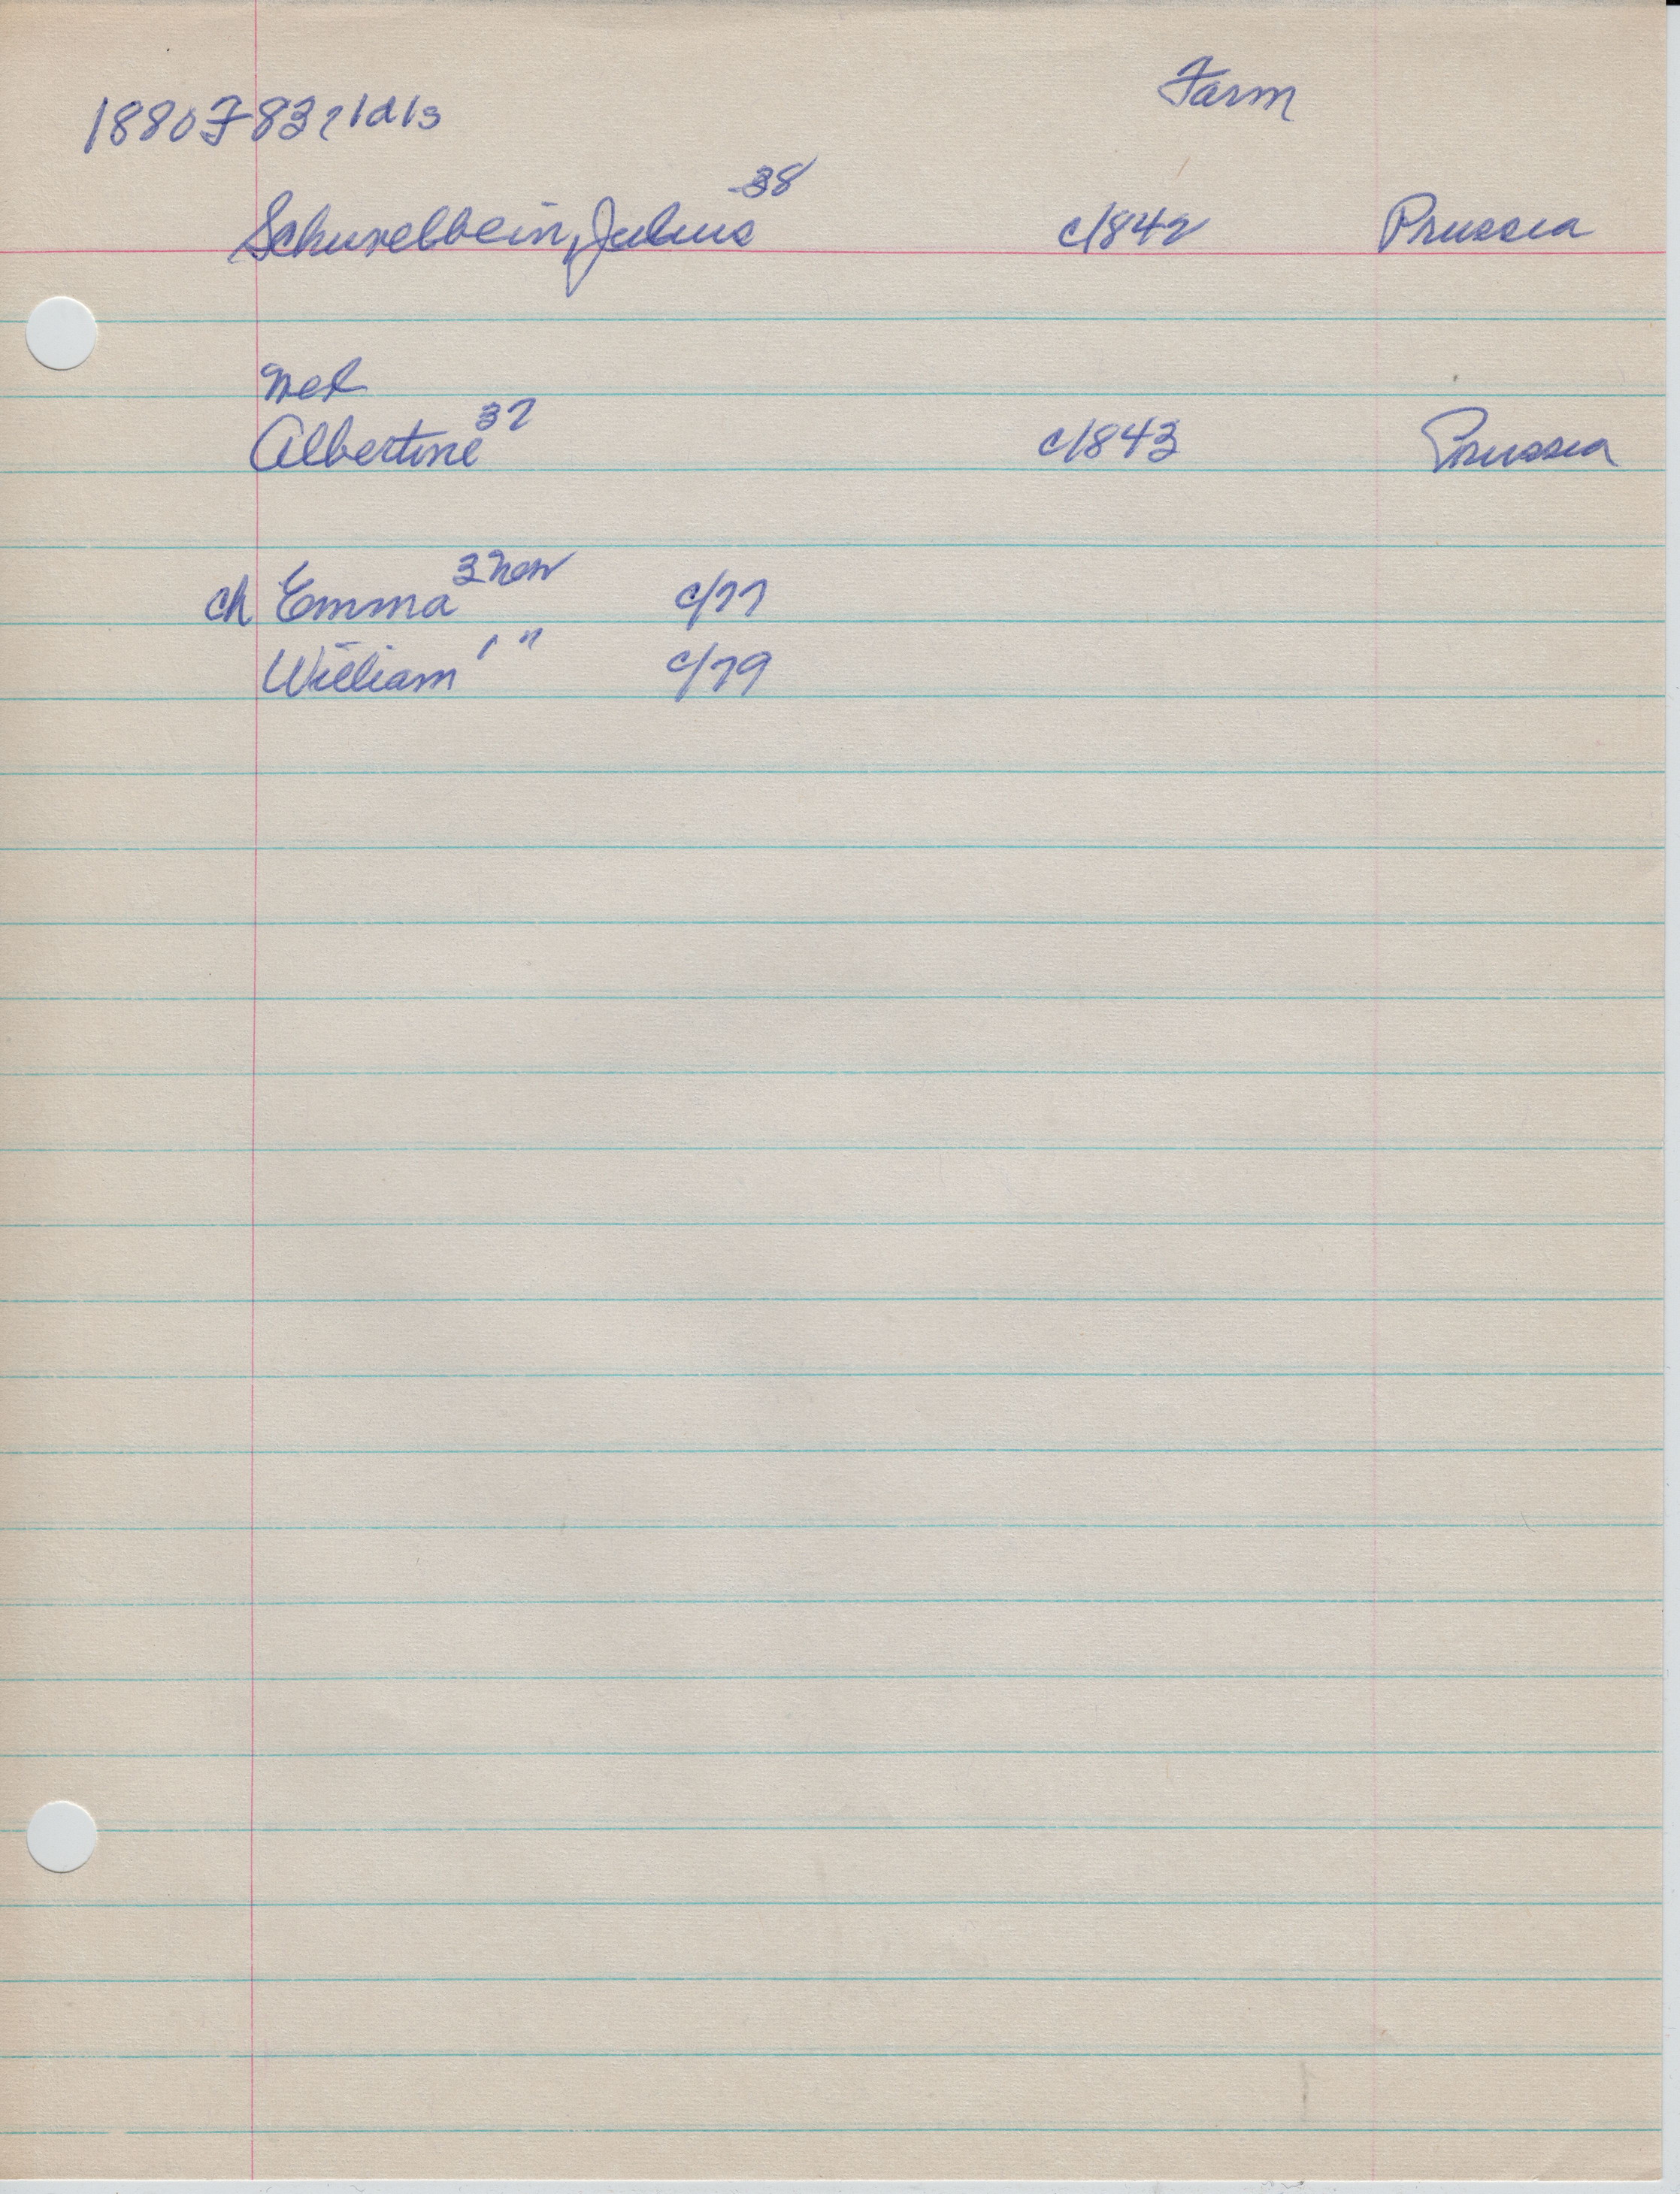 Farm
1880 F 832 1d1s
Schuvelbein, Julius 38 c1842 Prussia
Albertine 37 c1843 Prussia
ch Emma 3 c/77
William 1 " c/79